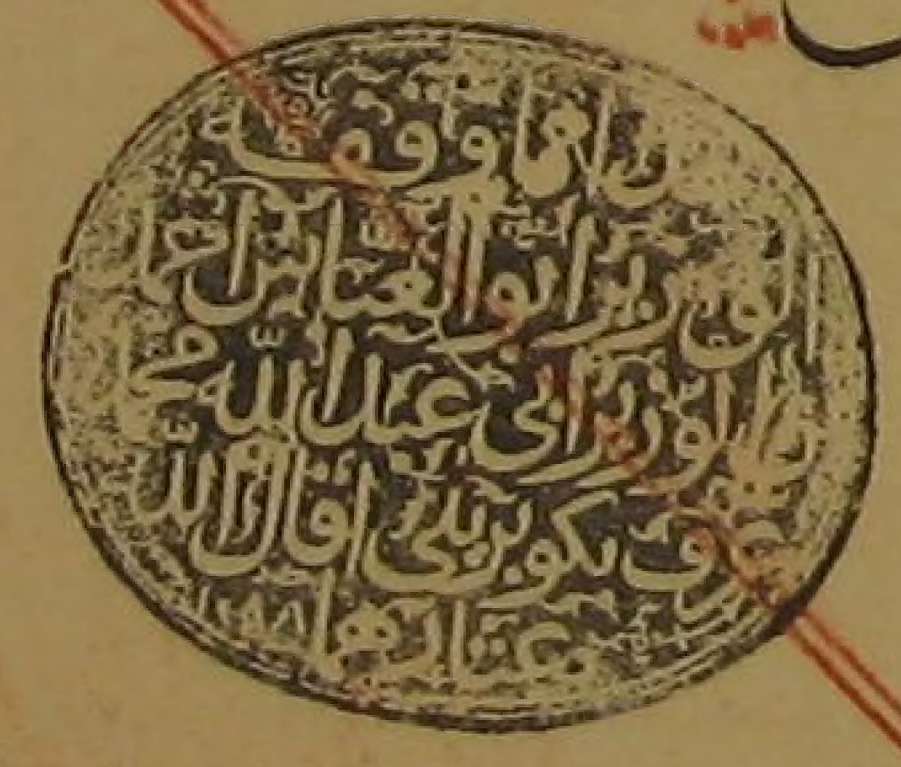 وقفه
الوزير ابو العباس احمد
بن الوزير ابي عبد الله محمد
عرف بكوبريلي اقال الله
عثارهما ١٠٨٨